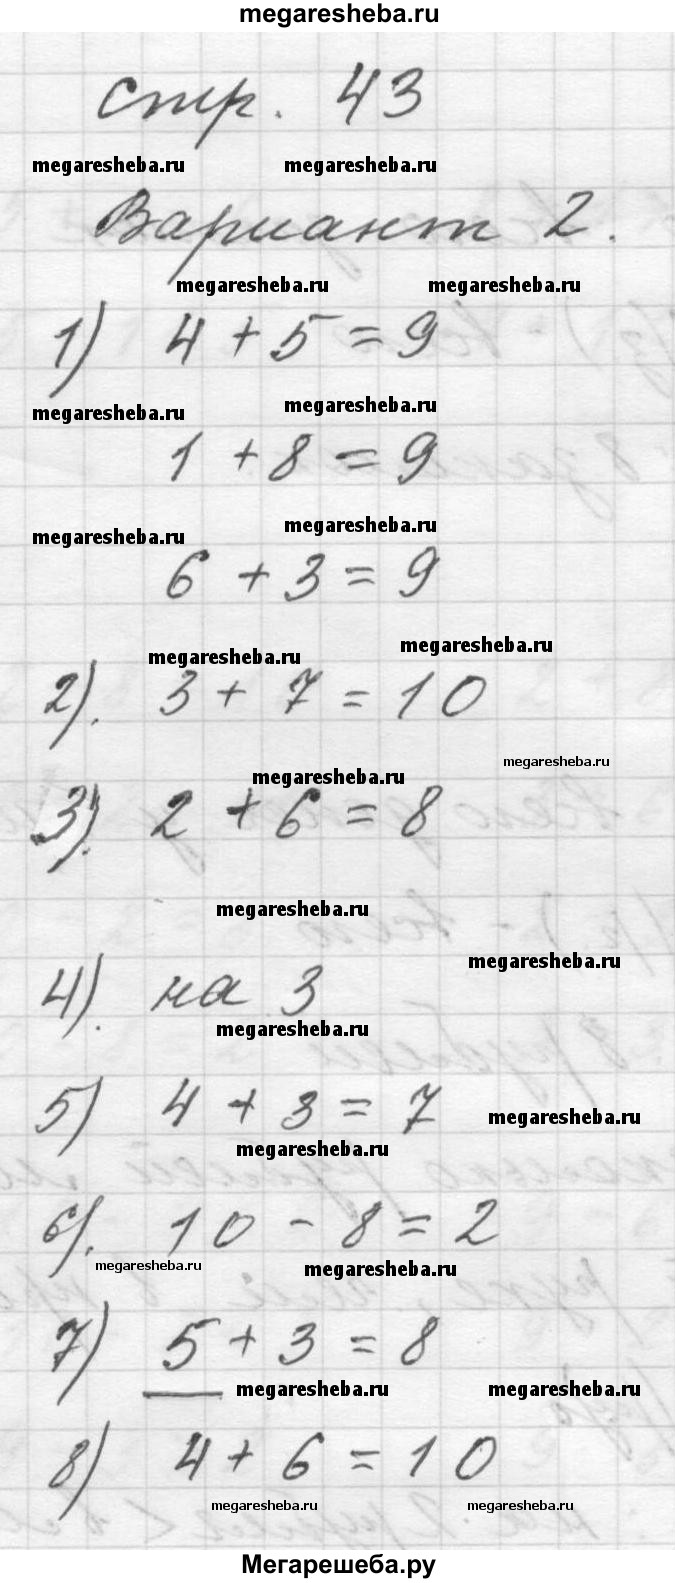 megaresheba.ru
стр. 43
megaresheba.ru megaresheba.ru
Вариант 2.
megaresheba.ru megaresheba.ru
1) 4 + 5 = 9
megaresheba.ru megaresheba.ru
1 + 8 = 9
megaresheba.ru megaresheba.ru
6 + 3 = 9
megaresheba.ru megaresheba.ru
2). 3 + 7 = 10
megaresheba.ru
megaresheba.ru
3). 2 + 6 = 8
megaresheba.ru
megaresheba.ru
4). на 3
megaresheba.ru
5) 4 + 3 = 7
megaresheba.ru
megaresheba.ru
6). 10 - 8 = 2
megaresheba.ru megaresheba.ru
7) 5 + 3 = 8
megaresheba.ru megaresheba.ru
8) 4 + 6 = 10
megaresheba.ru megaresheba.ru
Мегарешеба.ру